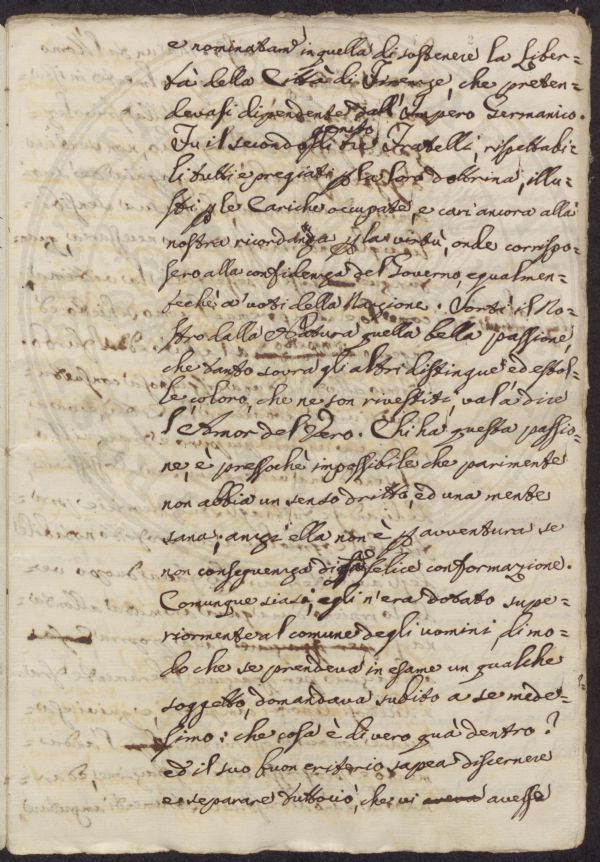 e nominatam. in quella di sostenere la Liber=
tà della Città di Firenze, che preten=
devasi dipendente dall'Impero Germanico.
Fu il secondo genito di tre Fratelli, rispettabi=
li tutti e pregiati p la loro dottrina, illu=
stri p le Cariche occupate, e cari ancora alla
nostra ricordanza p la virtù, onde corrispo=
sero alla confidenza del Governo, egualmen=
techè a' voti della Nazione. Sortì il No=
stro dalla Natura quella bella passione,
che tanto sovra gli altri distingue ed estol=
le coloro, che ne son rivestiti, val a dire
l'Amor del Vero. Chi ha questa passio=
ne, è pressochè impossibile che parimente
non abbia un senso dritto, ed una mente
sana; anzi ella non è p avventura se
non conseguenza di felice conformazione.
Comunque siasi, egli n'era dotato supe=
riormente al comune degli uomini, di mo=
do che se prendeva in esame un qualche
soggetto, domandava subito a se mede=
simo: che cosa è di vero quà dentro?
ed il suo buon criterio sapea discernere
e separare tuttociò, che vi aveva avesse